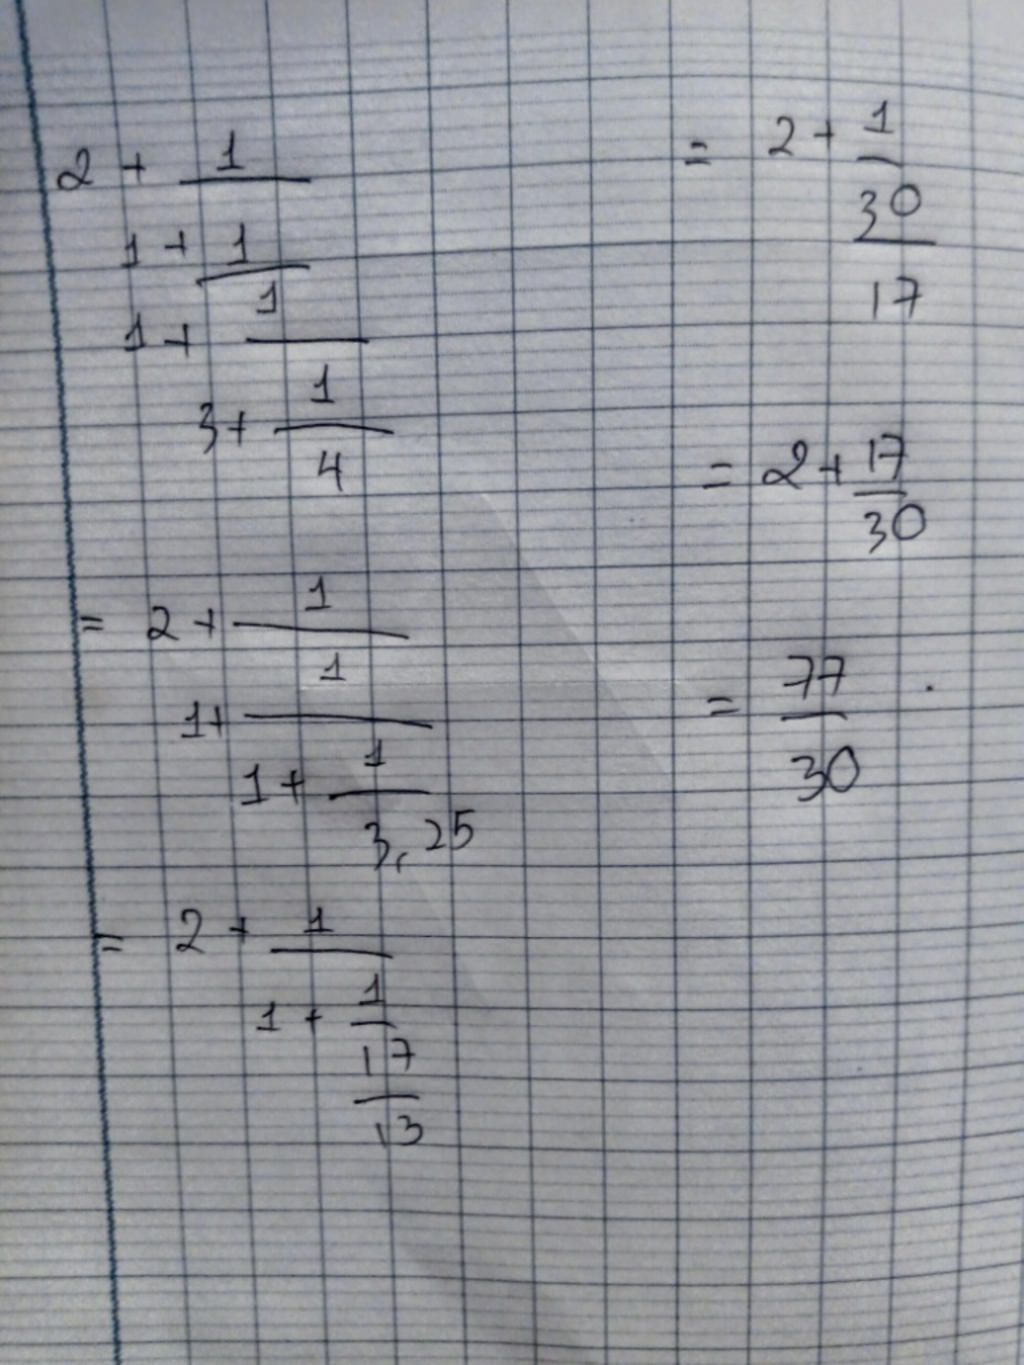 2 + 1
1 + 1
1 + 1
3 + 1
4
= 2 + 1
1 + 1
1 + 1
3,25
= 2 + 1
1 + 1
17
13
= 2 + 1
30
17
= 2 + 17
30
= 77
30